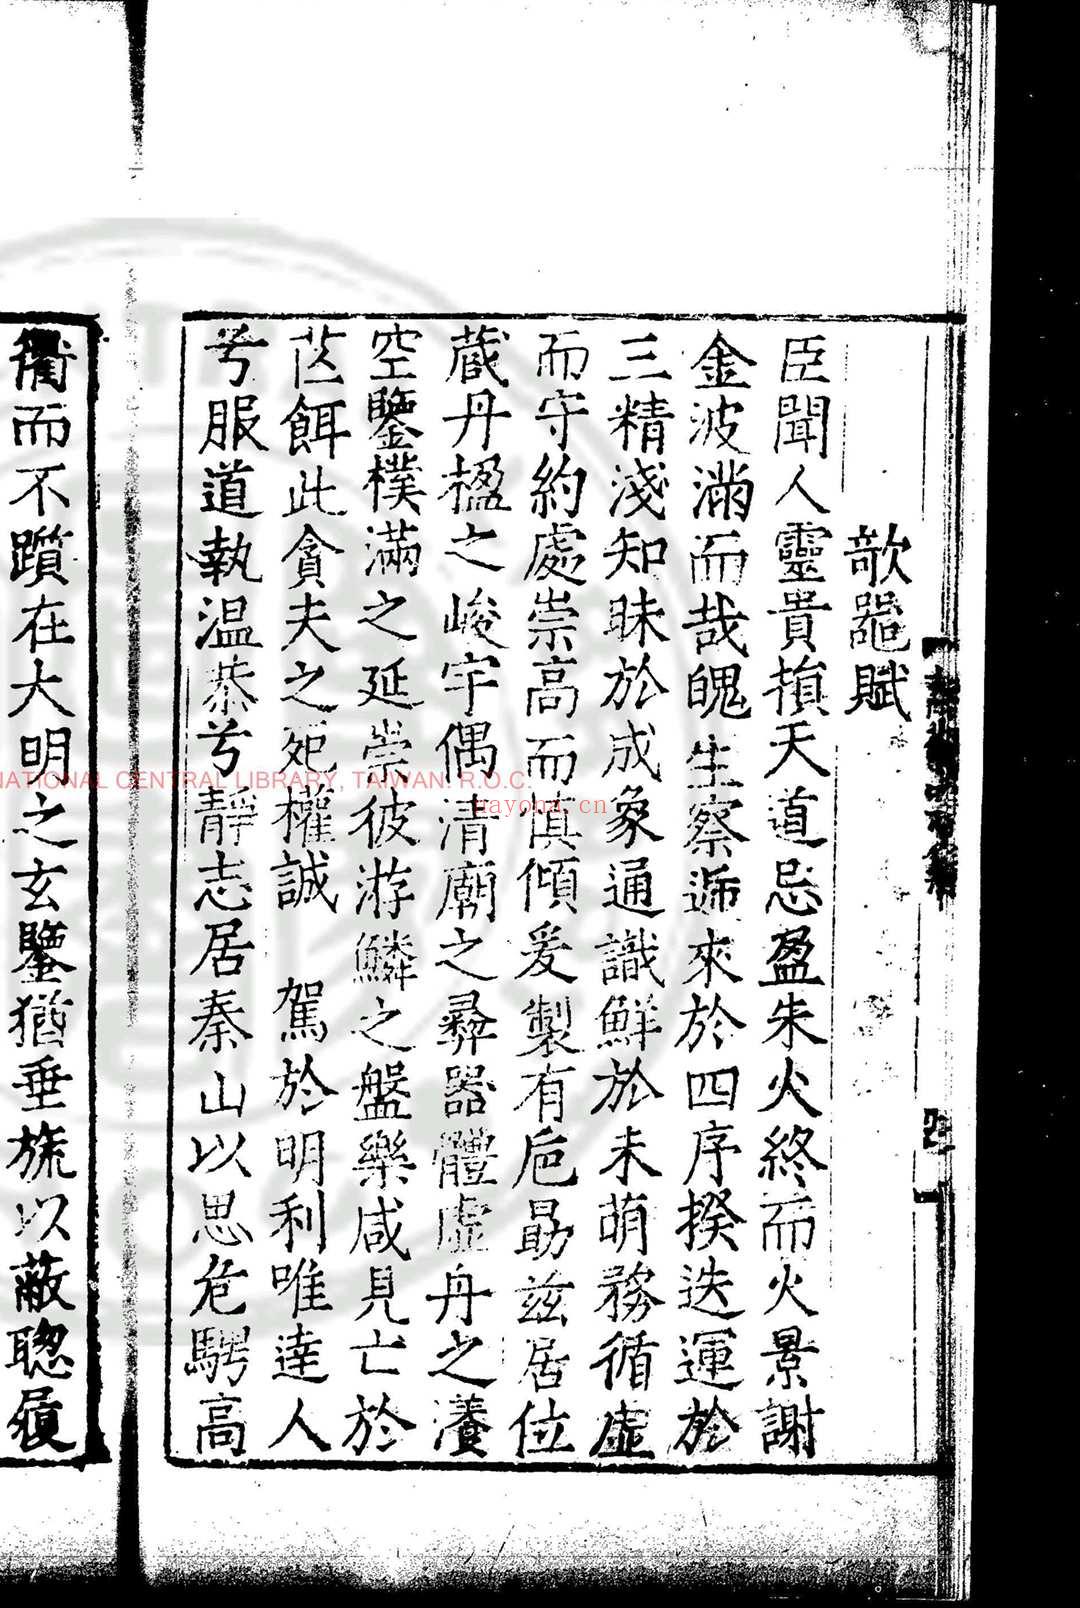 欹器賦
臣聞人靈貴損天道忌盈朱火終而火景謝
金波滿而哉魄生察遞來於四序揆迭運於
三精淺知昧於成象通識鮮於未萌務循虛
而守約處崇高而慎傾爰製有卮勗兹居位
蔵丹楹之峻宇偶清廟之彞器體虛舟之瀁
空鑒樸滿之延崇彼游鱗之盤樂咸見亡於
芘餌此貪夫之死權誠 駕於明利唯達人
兮服道執温恭兮靜志居秦山以思危騁高
衢而不躓在大明之玄鑒猶垂旒以蔽聦展
NATIONAL CENTRAL LIBRARY, TAIWAN. R.O.C.
hayona.cn